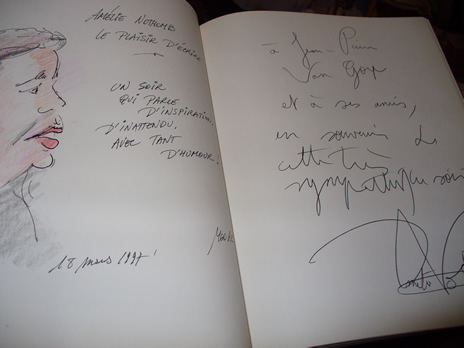 AMÉLIE NOTHOMB
LE PLAISIR D'ÉCRIRE
UN SOIR
QUI PARLE
D'INSPIRATION,
D'INATTENDU,
AVEC TANT
D'HUMOUR.
18 mars 1997
à Jean-Pierre
Van Gorp
et à ses amis,
en souvenir de
cette très
sympathique soirée